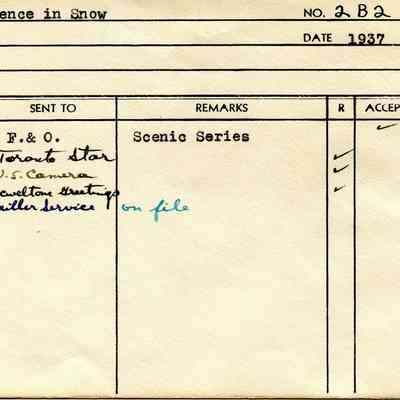 ence in Snow NO. 2B2
DATE 1937
SENT TO REMARKS R ACCEP
F. & O. Scenic Series
Toronto Star
U.S. Camera
Greetings
Service on file